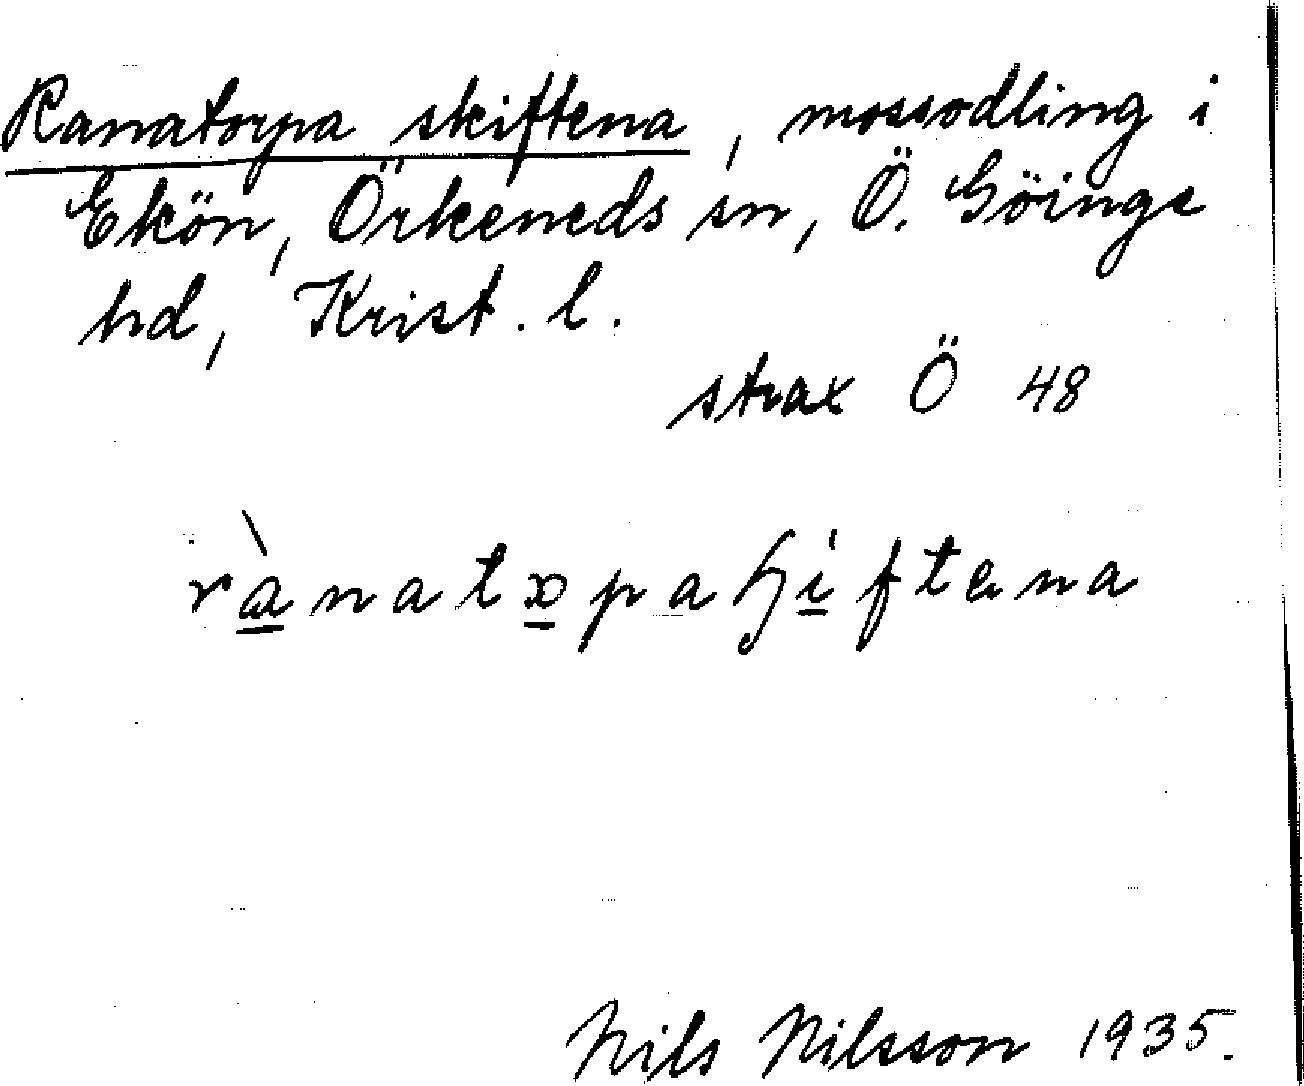 Ranatorpa skiftena, mossodling i
Ekön, Örkeneds sn, Ö. Göinge
hd, Krist. l.
strax Ö 48
Nils Nilsson 1935.